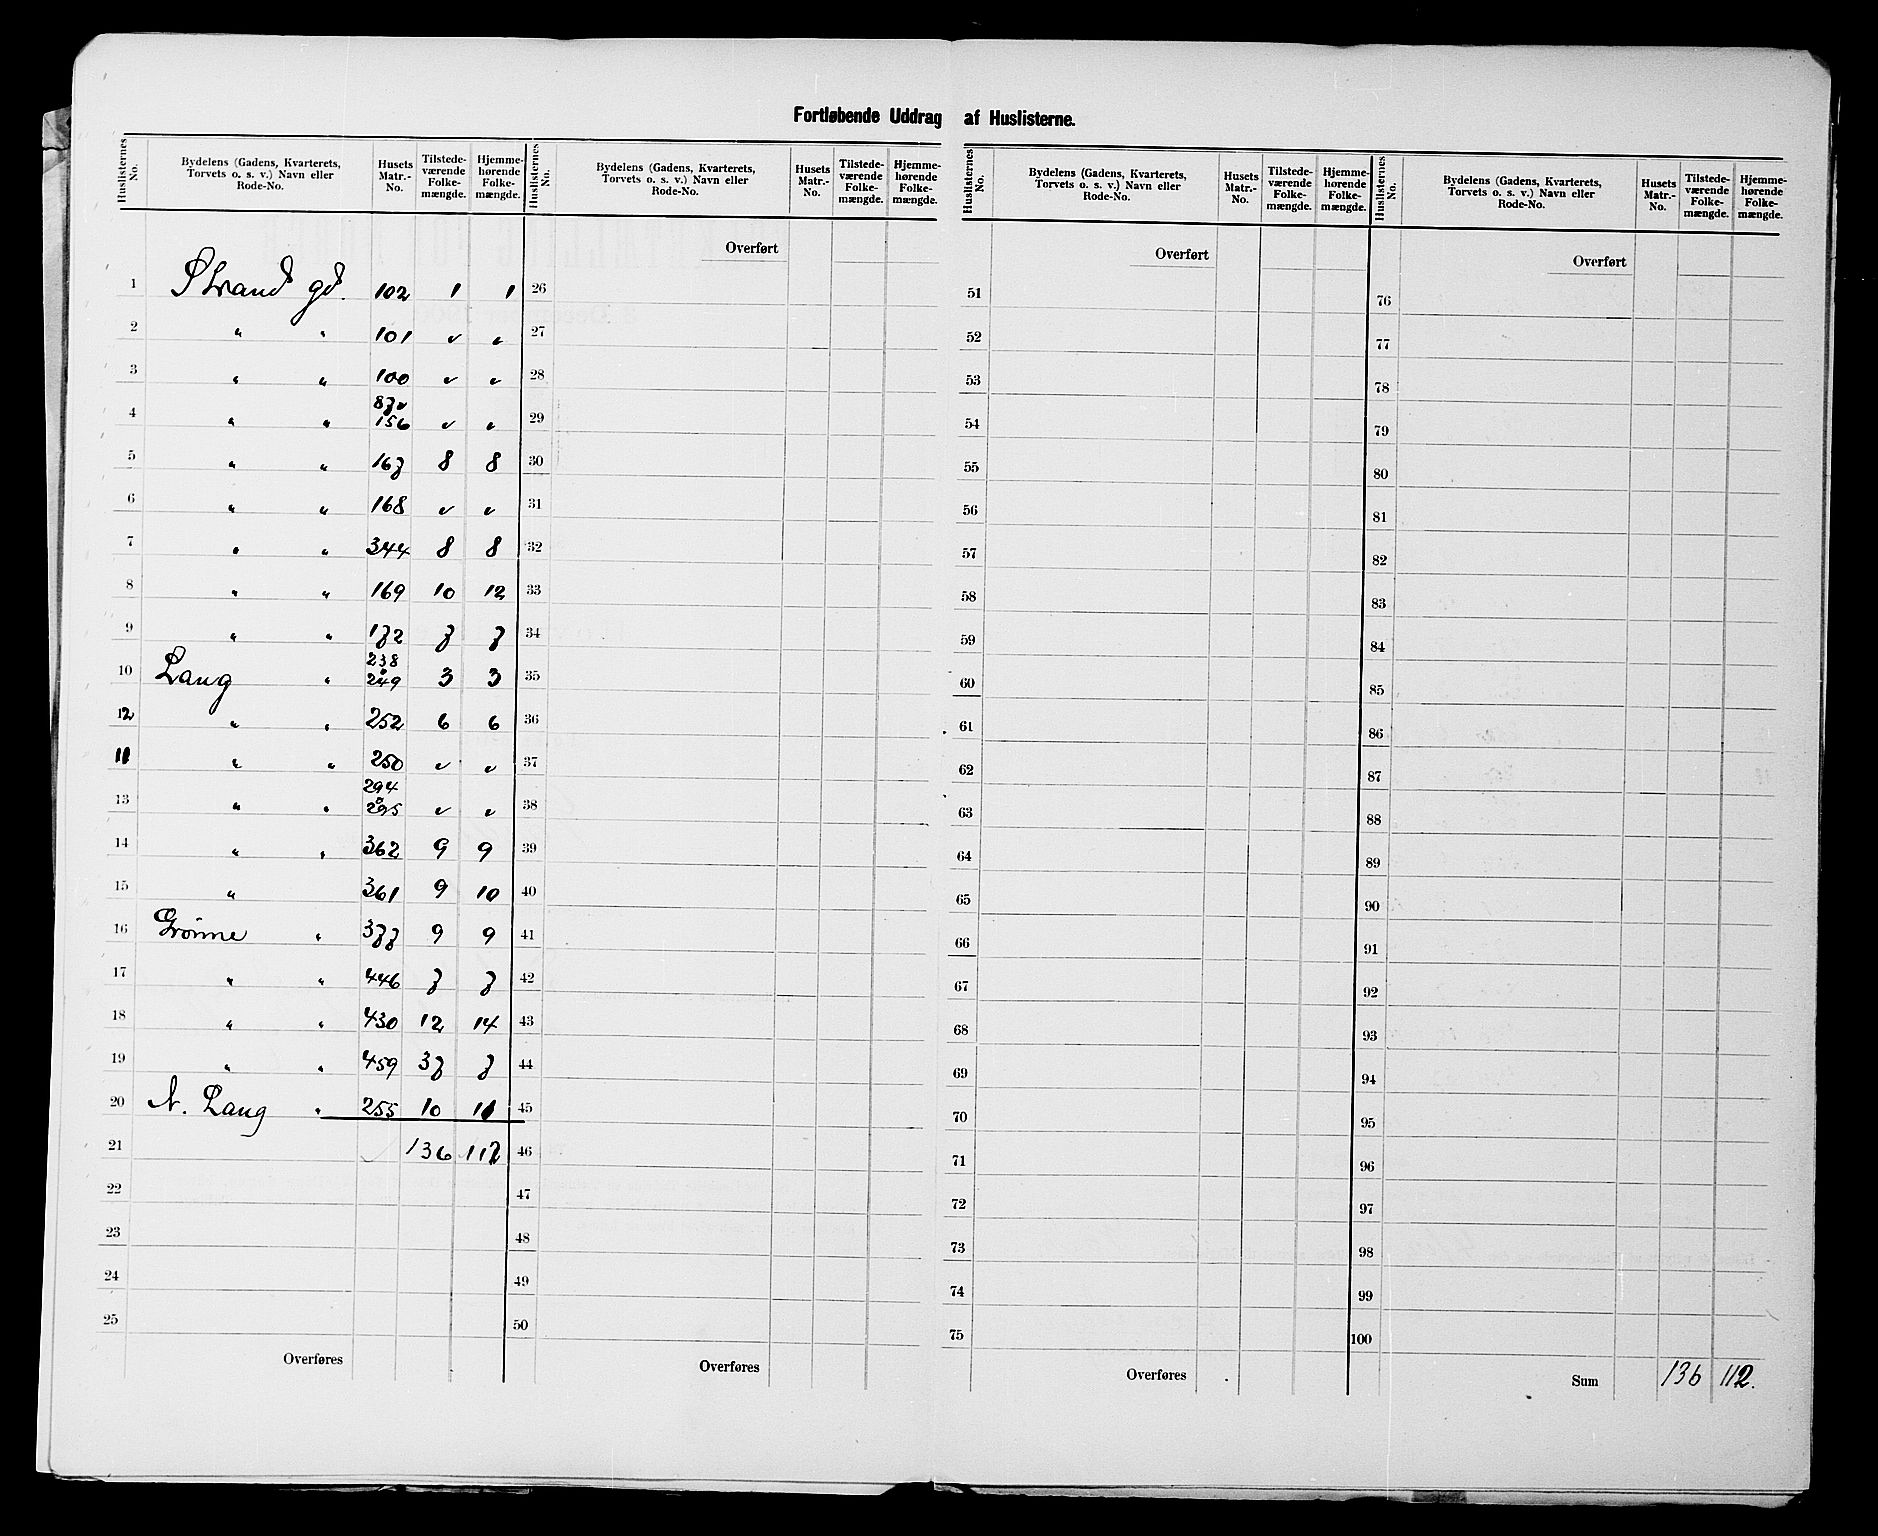 Fortløbende Uddrag af Huslisterne.
Huslisternes No. | Bydelens (Gadens, Kvarterets, Torvets o. s. v.) Navn eller Rode-No. | Husets Matr.-No. | Tilstedeværende Folkemængde. | Hjemmehørende Folkemængde.
1 Strand gd. 102 1 1
2 " " 101 v v
3 " " 100 v v
4 " " 87 v 156 v v
5 " " 167 8 8
6 " " 168 v v
7 " " 344 8 8
8 " " 169 10 12
9 " " 172 7 7
10 Lang " 238 & 249 3 3
12 " " 252 6 6
11 " " 250 v v
13 " " 294 & 295 v v
14 " " 362 9 9
15 " 361 9 10
16 Grønne " 377 9 9
17 " " 446 7 7
18 " " 430 12 14
19 " " 459 37 7
20 N. Lang " 255 10 11
21 136 112
22
23
24
25
Overføres
Huslisternes No. | Bydelens (Gadens, Kvarterets, Torvets o. s. v.) Navn eller Rode-No. | Husets Matr.-No. | Tilstedeværende Folkemængde. | Hjemmehørende Folkemængde.
Overført
26
27
28
29
30
31
32
33
34
35
36
37
38
39
40
41
42
43
44
45
46
47
48
49
50
Overføres
Huslisternes No. | Bydelens (Gadens, Kvarterets, Torvets o. s. v.) Navn eller Rode-No. | Husets Matr.-No. | Tilstedeværende Folkemængde. | Hjemmehørende Folkemængde.
Overført
51
52
53
54
55
56
57
58
59
60
61
62
63
64
65
66
67
68
69
70
71
72
73
74
75
Overføres
Huslisternes No. | Bydelens (Gadens, Kvarterets, Torvets o. s. v.) Navn eller Rode-No. | Husets Matr.-No. | Tilstedeværende Folkemængde. | Hjemmehørende Folkemængde.
Overført
76
77
78
79
80
81
82
83
84
85
86
87
88
89
90
91
92
93
94
95
96
97
98
99
100
Sum 136 112.